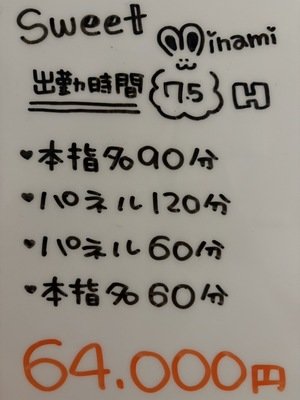 Sweet
Minami
出勤時間 7.5 H
♥本指名90分
♥パネル120分
♥パネル60分
♥本指名60分
64.000円